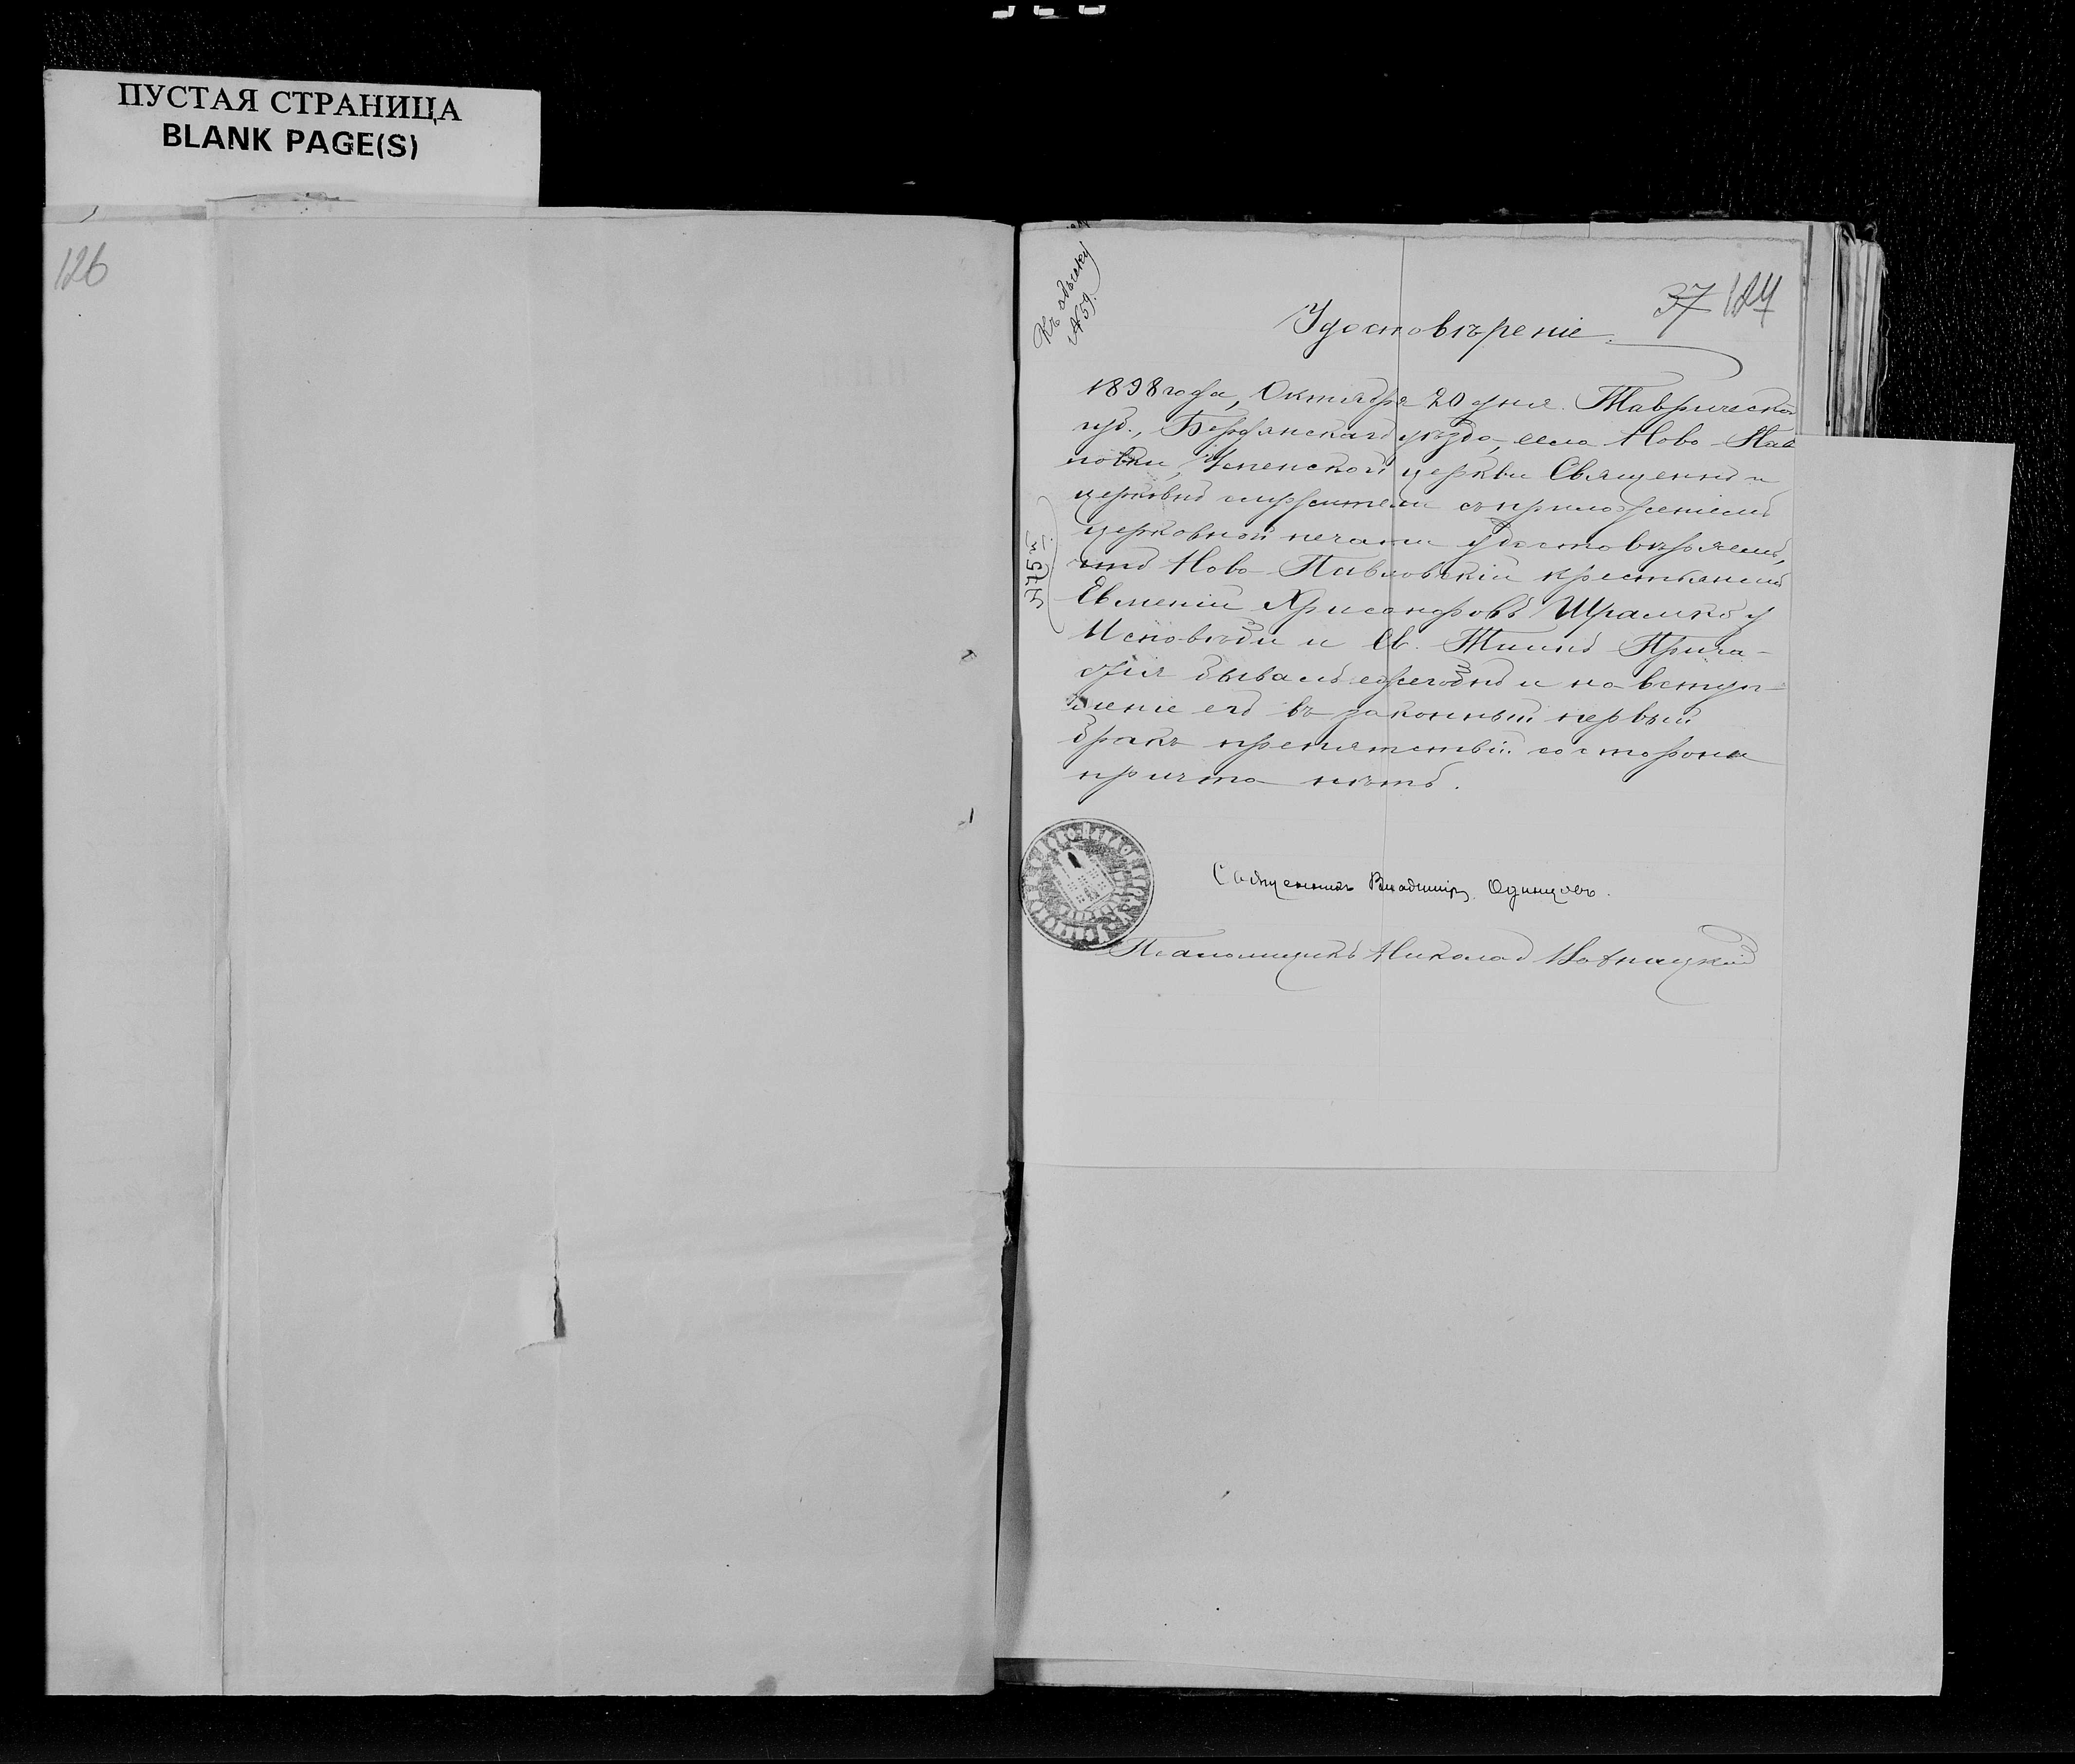 ПУСТАЯ СТРАНИЦА
BLANK PAGE(S)
126
Къ обыску
№ 59.
37 124
Удостовѣреніе.
1898 года, Октября 20 дня. Таврической
губ., Бердянскаго уѣзда, села Ново-Пав
ловки, Успенской церкви Священно и
церковно служители съ приложеніемъ
церковной печати удостовѣряемъ,
что Ново-Павловскій крестьянинъ
Евменій Хрисанфовъ Шрамко у
Исповѣди и Св. Таинъ Прича-
стія бывалъ ежегодно и на вступ-
леніе его въ законный первый
бракъ препятствій со стороны
причта нѣтъ.
Священникъ Владиміръ Одинцовъ.
Псаломщикъ Николай